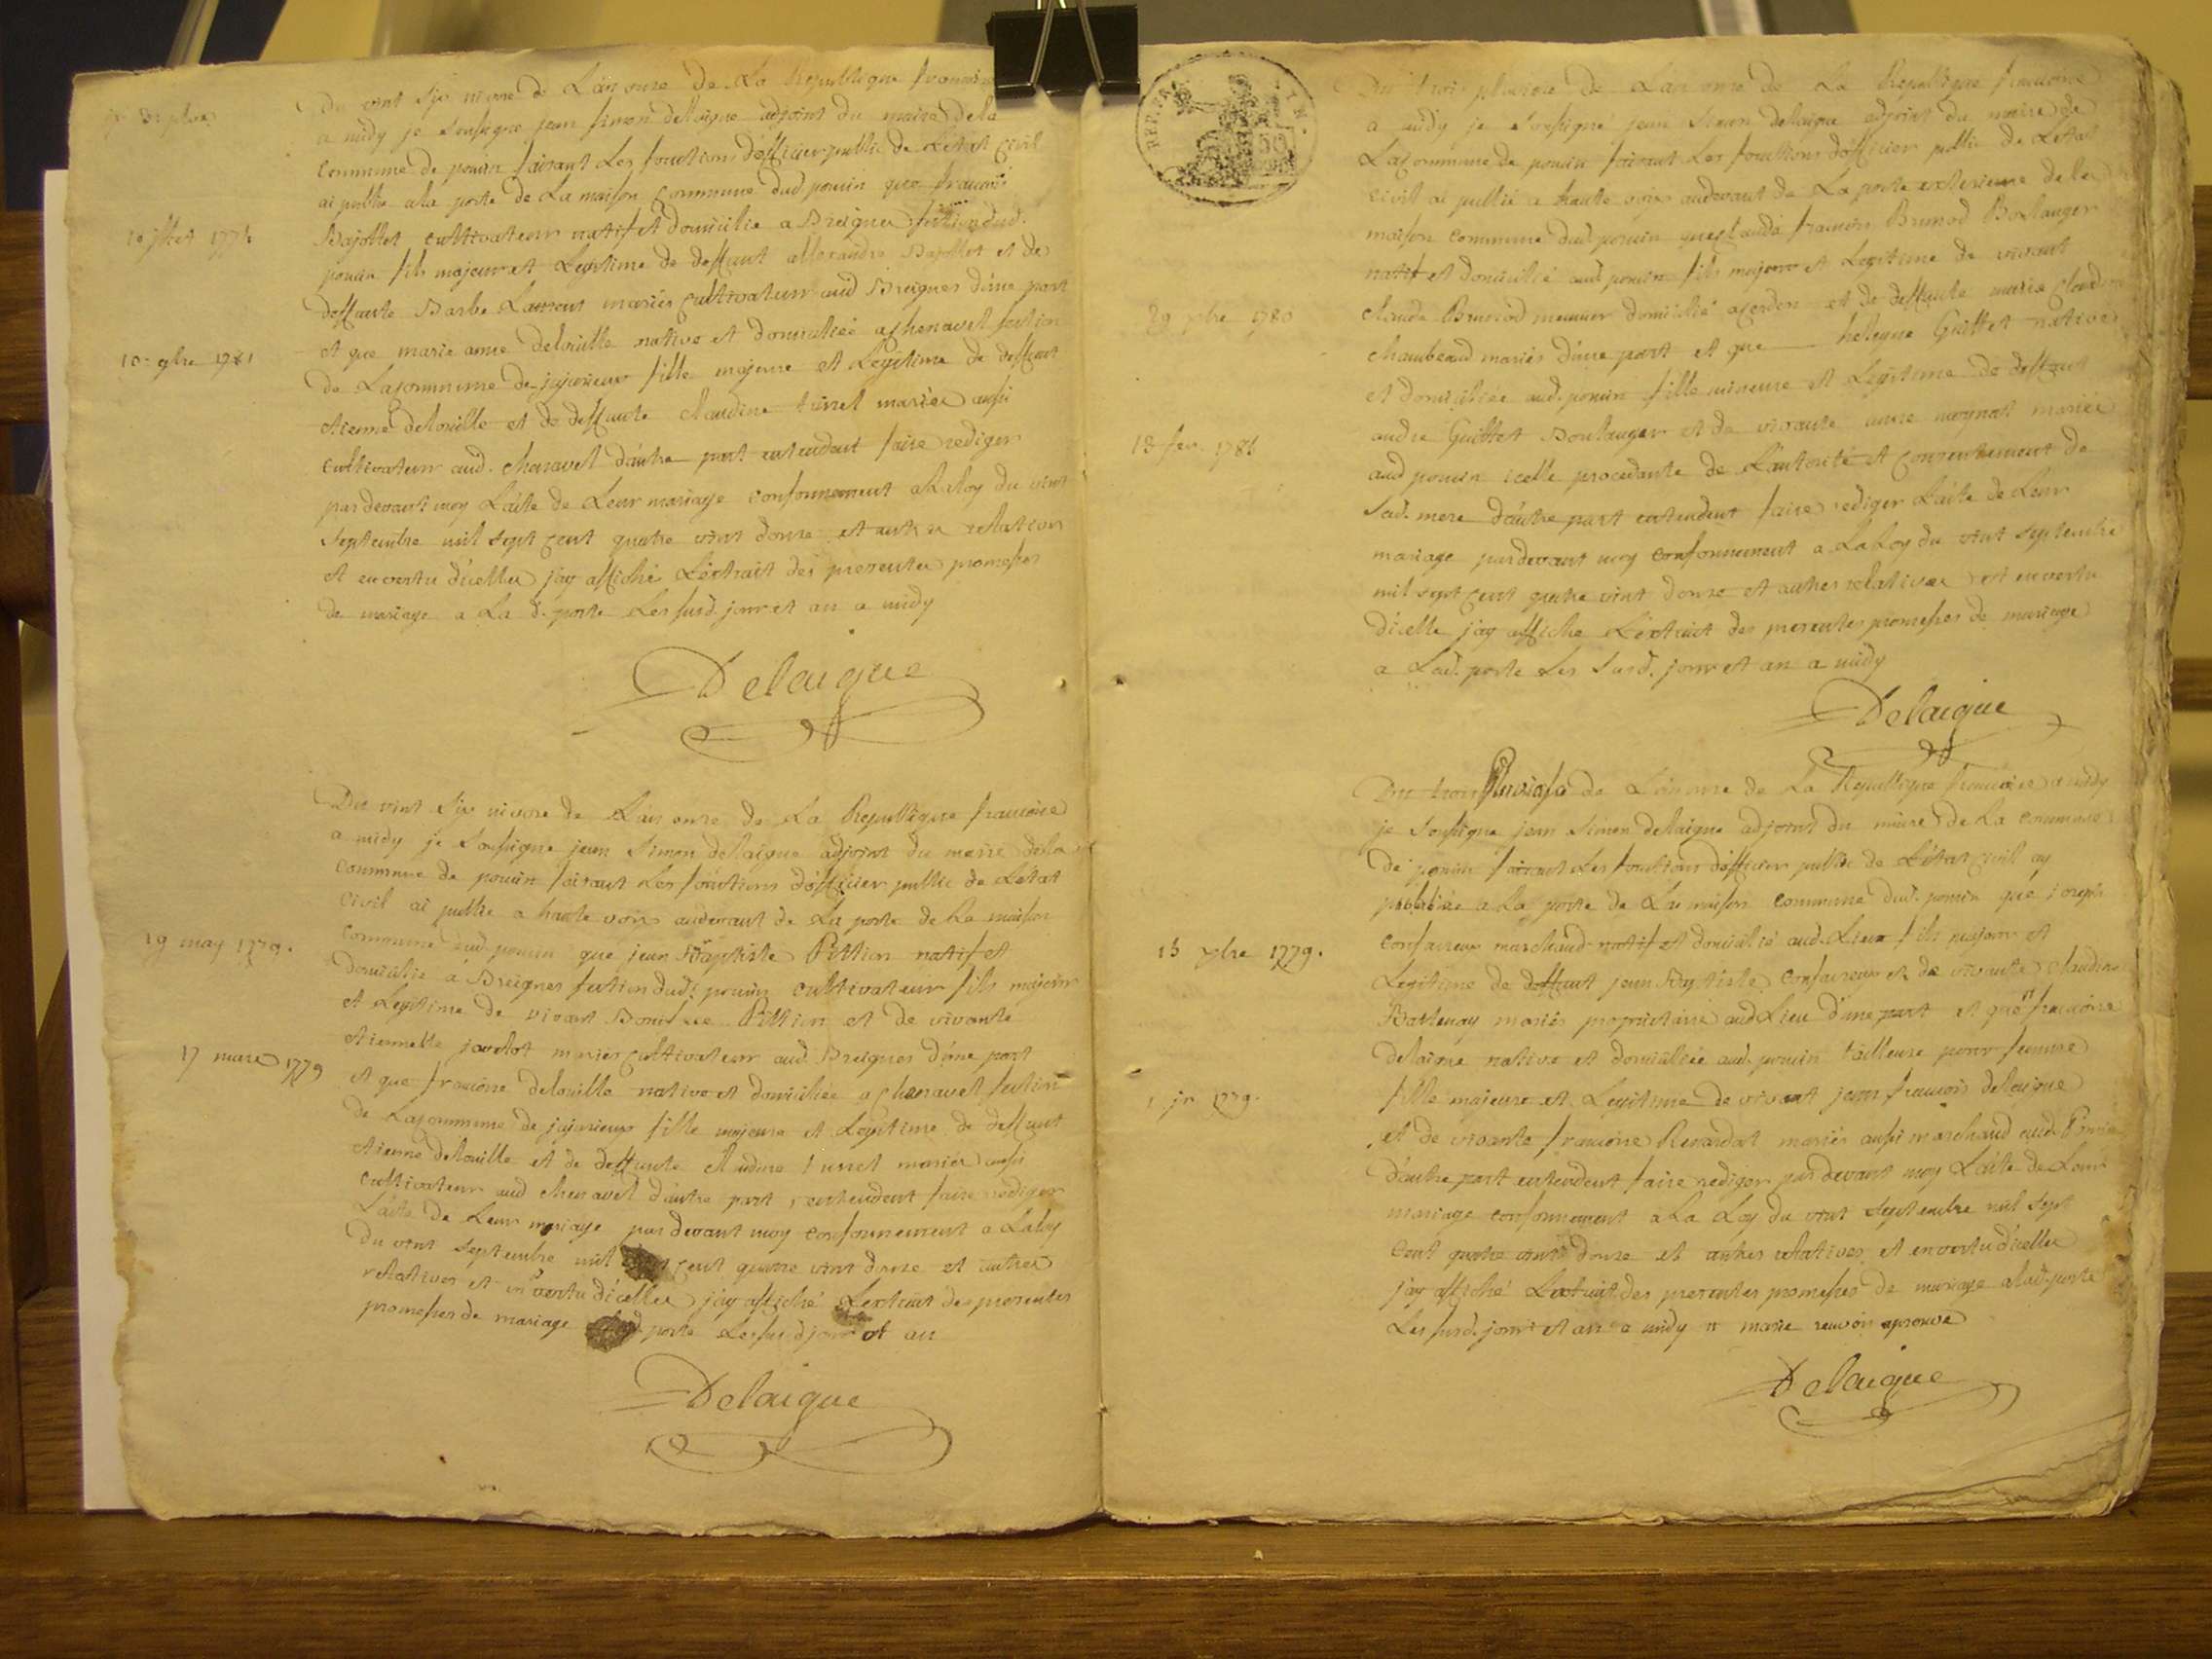 Du vint six nivose de Lan onze de La Republique francoise
a midy je soussigne jean simon delaigue adjoint du maire de la
commune de poncin faisant Les fonctions d'officier public de L'etat civil
ai publie a la porte de La maison Commune dud poncin que francois
10 jllet 1774
Bajollet cultivateur natif et domicilie a Breignes section dud.
poncin fils majeur et Legitime de deffunt allexandre Bajollet et de
deffunte Barbe Laurent mariés cultivateur aud Breignes d'une part
10 9bre 1781
et que marie anne delouille native et domiciliée a chenavel section
de La commune de jujurieux fille majeure et Legitime de deffunt
etienne delouille et de deffunte claudine tirrel mariés aussi
cultivateur aud. chenavel d'autre part entendent faire rediger
pardevant moy L'acte de Leur mariage conformement a La Loy du vint
septembre mil sept cent quatre vint douze et autres relatives
et en vertu d'icelles j'ay affiché L'extrait des presentes promesses
de mariage a La d. porte Les susd. jour et an a midy
Delaigue
Du vint six nivose de Lan onze de La Republique francoise
a midy je soussigne jean simon delaigue adjoint du maire de la
commune de poncin faisant Les fonctions d'officier public de L'etat
civil ai publie a haute voix audevant de La porte de La maison
19 may 1779.
commune dud. poncin que jean Baptiste Pittion natif et
domicilie a Breignes section dud. poncin cultivateur fils majeur
et Legitime de vivant Boniface Pittion et de vivante
etiennette javelot mariés cultivateur aud Breignes d'une part
17 mars 1779
et que francoise delouille native et domiciliée a chenavel section
de La commune de jujurieux fille majeure et Legitime de deffunt
etienne delouille et de deffunte claudine tirrel mariés aussi
cultivateur aud chenavel d'autre part, entendent faire rediger
L'acte de Leur mariage pardevant moy conformement a La Loy
du vint septembre mil sept cent quatre vint douze et autres
relatives et en vertu d'icelles j'ay affiché L'extrait des presentes
promesses de mariage a Lad. porte Les susd jour et an
Delaigue
REP. FRA.
50
Du trois pluviose de Lan onze de La Republique francoise
a midy je soussigné jean simon delaigue adjoint du maire de
La commune de poncin faisant Les fonctions d'officier public de L'etat
civil ai publié a haute voix audevant de La porte exterieure de la
maison commune dud. poncin que Claude francois Brunod Boulanger
natif et domicilié aud. poncin fils majeur et Legitime de vivant
29 xbre 1780
claude Brunod meunier domicilié a cerdon et de deffunte marie claudine
chambeaud mariés d'une part et que helegne Guillet native
et domiciliée aud. poncin fille mineure et Legitime de deffunt
13 fev. 1786
andre Guillet Boulanger et de vivante anne moynat mariés
aud poncin icelle procedante de L'autorité et consentement de
sad. mere d'autre part entendent faire rediger L'acte de Leur
mariage pardevant moy conformement a La Loy du vint septembre
mil sept cent quatre vint douze et autres relatives et en vertu
d'icelle j'ay affiche L'extrait des presentes promesses de mariage
a Lad. porte Les susd. jour et an a midy
Delaigue
Du trois Pluviose de Lan onze de La Republique francoise a midy
je soussigne jean simon delaigue adjoint du maire de La commune
de poncin faisant Les fonctions d'officier public de L'etat civil ay
publié a La porte de La maison commune dud. poncin que joseph
15 xbre 1779.
confavreux marchand natif et domicilié aud. Lieu fils majeur et
Legitime de deffunt jean Baptiste confavreux et de vivante claudine
Battenay mariés proprietaire aud Lieu d'une part et que francoise
delaigue native et domiciliée aud. poncin tailleuse pour femme
1 jr 1779.
fille majeure et Legitime de vivant jean francois delaigue
et de vivante francoise Ravandat mariés aussi marchand aud. Poncin
d'autre part entendent faire rediger pardevant moy L'acte de Leur
mariage conformement a La Loy du vint septembre mil sept
cent quatre vint douze et autres relatives et en vertu d'icelles
j'ay affiché L'extrait des presentes promesses de mariage a lad. porte
Les susd. jour et an a midy marie renvoi aprouvé
Delaigue